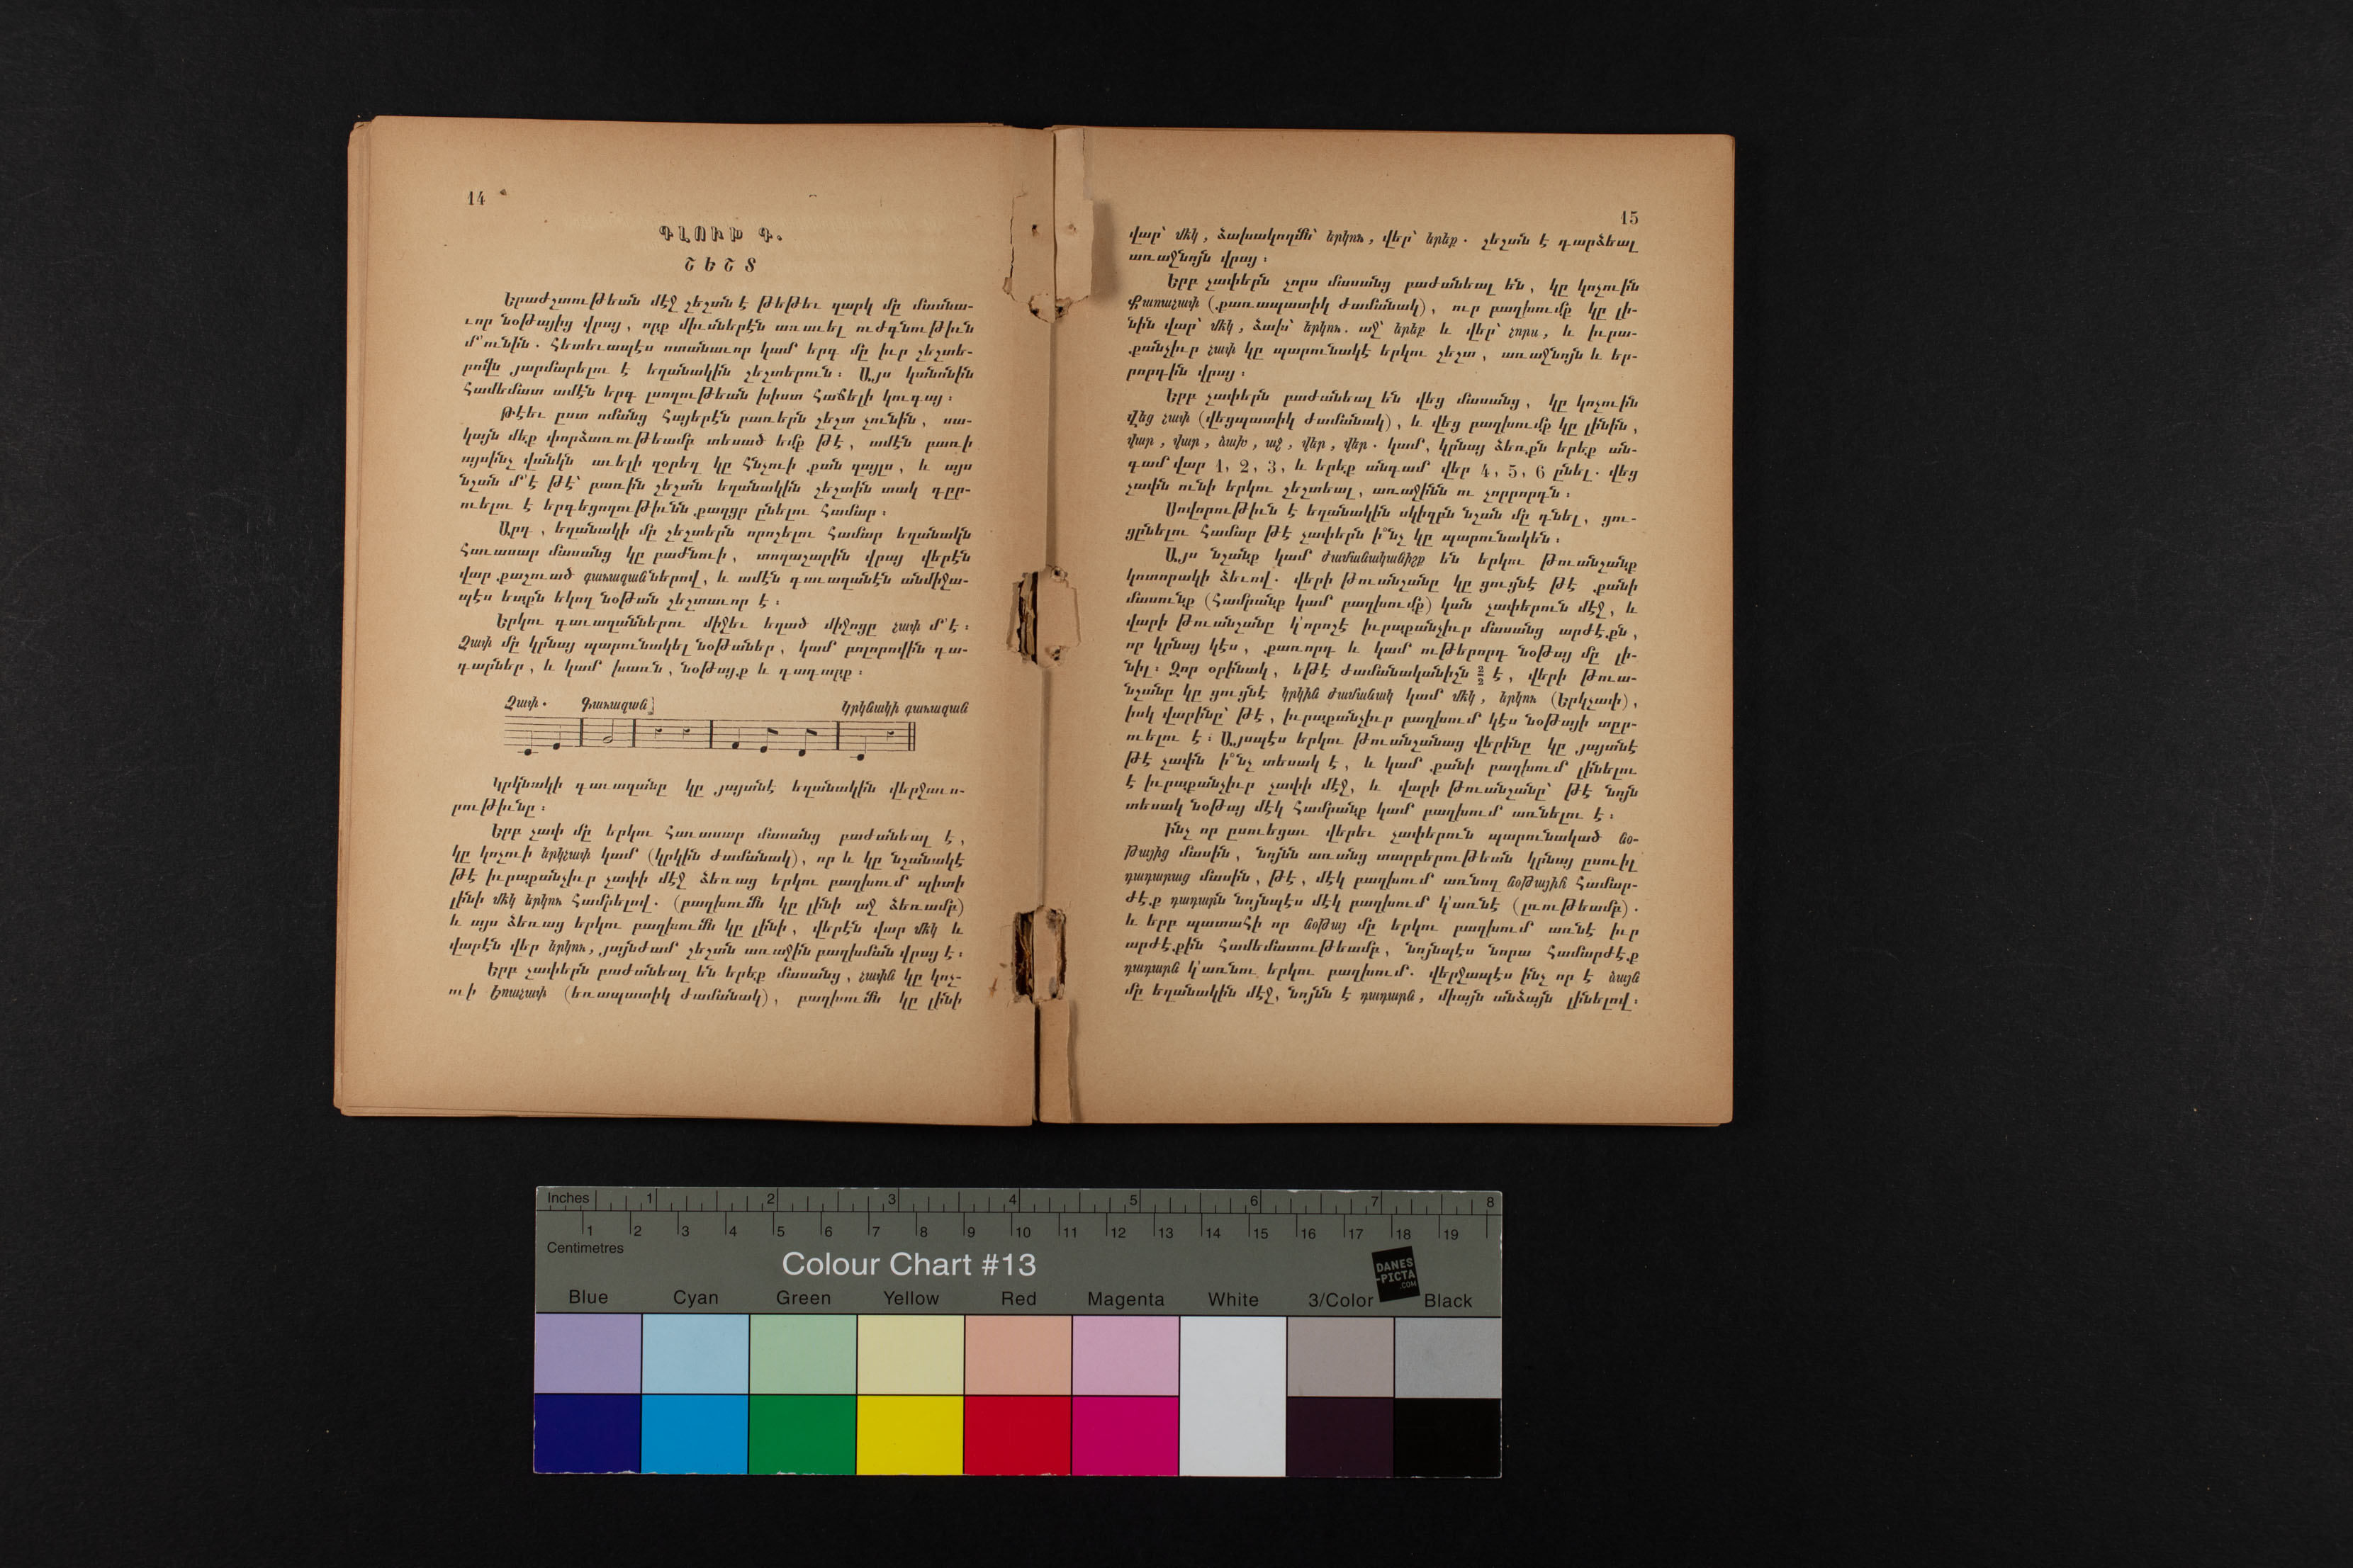 14
ԳԼՈՒԽ Գ.
ՇԵՇՏ
Երաժշտութեան մէջ շեշտն է թեթեւ զարկ մը մասնա-
ւոր նօթայից վրայ, որք միւսներէն առաւել ուժգնութիւն
մ՚ունին. հետեւապէս ոտանաւոր կամ երգ մը իւր շեշտե-
րովն յարմարելու է եղանակին շեշտերուն։ Այս կանոնին
համեմատ ամէն երգ լսողութեան խիստ հաճելի կուգայ։
Թէեւ ըստ ոմանց հայերէն բառերն շեշտ չունին, սա-
կայն մեք փորձառութեամբ տեսած եմք թէ, ամէն բառի
այսինչ վանկն աւելի զօրեղ կը հնչուի քան զայլս, և այս
նշան մ՚է թէ՝ բառին շեշտն եղանակին շեշտին տակ դըր-
ուելու է երգեցողութիւնն քաղցր ընելու համար։
Արդ, եղանակի մը շեշտերն որոշելու համար եղանակն
հաւասար մասանց կը բաժնուի, տողաշարին վրայ վերէն
վար քաշուած գաւազաններով, և ամէն գաւազանէն անմիջա-
պէս ետքն եկող նօթան շեշտաւոր է։
Երկու գաւազաններու միջեւ եղած միջոցը չափ մ՚է։
Չափ մը կրնայ պարունակել նօթաներ, կամ բոլորովին դա-
դարներ, և կամ խառն, նօթայք և դադարք։
Չափ. Գաւազան Կրկնակի գաւազան
Կրկնակի գաւազանը կը յայտնէ եղանակին վերջաւո-
րութիւնը։
Երբ չափ մը երկու հաւասար մասանց բաժանեալ է,
կը կոչուի երկչափ կամ (կրկին ժամանակ), որ և կը նշանակէ
թէ իւրաքանչիւր չափի մէջ ձեռաց երկու բաղխում պիտի
լինի մեկ երկու համրելով. (բաղխումն կը լինի աջ ձեռամբ)
և այս ձեռաց երկու բաղխումն կը լինի, վերէն վար մեկ և
վարէն վեր երկու, յայնժամ շեշտն առաջին բաղխման վրայ է։
Երբ չափերն բաժանեալ են երեք մասանց, չափն կը կոչ-
ուի Եռաչափ (եռապատիկ ժամանակ), բաղխումն կը լինի
15
վար՝ մեկ, ձախակողմն՝ երկու, վեր՝ երեք. շեշտն է դարձեալ
առաջնոյն վրայ։
Երբ չափերն չորս մասանց բաժանեալ են, կը կոչուին
Քառաչափ (քառապատիկ ժամանակ), ուր բաղխումք կը լի-
նին վար՝ մեկ, ձախ՝ երկու. աջ՝ երեք և վեր՝ չորս, և իւրա-
քանչիւր չափ կը պարունակէ երկու շեշտ, առաջնոյն և եր-
րորդին վրայ։
Երբ չափերն բաժանեալ են վեց մասանց, կը կոչուին
Վեց չափ (վեցպատիկ ժամանակ), և վեց բաղխումք կը լինին,
վար, վար, ձախ, աջ, վեր, վեր. կամ, կրնայ ձեռքն երեք ան-
գամ վար 1, 2, 3, և երեք անգամ վեր 4, 5, 6 ընել. վեց
չափն ունի երկու շեշտեալ, առաջինն ու չորրորդն։
Սովորութիւն է եղանակին սկիզբն նշան մը դնել, ցու-
ցընելու համար թէ չափերն ի՞նչ կը պարունակեն։
Այս նշանք կամ ժամանականիշք են երկու թուանշանք
կոտորակի ձեւով. վերի թուանշանը կը ցուցնէ թէ քանի
մասունք (համրանք կամ բաղխումք) կան չափերուն մէջ, և
վարի թուանշանը կ՚որոշէ իւրաքանչիւր մասանց արժէքն,
որ կրնայ կէս, քառորդ և կամ ութերորդ նօթայ մը լի-
նիլ։ Զոր օրինակ, եթէ ժամանականիշն 2/2 է, վերի թուա-
նշանը կը ցուցնէ կրկին ժամանակ կամ մեկ, երկու (Երկչափ),
իսկ վարինը՝ թէ, իւրաքանչիւր բաղխում կէս նօթայի տըր-
ուելու է։ Այսպէս երկու թուանշանաց վերինը կը յայտնէ
թէ չափն ի՞նչ տեսակ է, և կամ քանի բաղխում լինելու
է իւրաքանչիւր չափի մէջ, և վարի թուանշանը՝ թէ նոյն
տեսակ նօթայ մէկ համրանք կամ բաղխում առնելու է։
Ինչ որ ըսուեցաւ վերեւ չափերուն պարունակած նօ-
թայից մասին, նոյնն առանց տարբերութեան կրնայ ըսուիլ
դադարաց մասին, թէ, մէկ բաղխում առնող նօթային համար-
ժէք դադարն նոյնպէս մէկ բաղխում կ՚առնէ (լռութեամբ).
և երբ պատահի որ նօթայ մը երկու բաղխում առնէ իւր
արժէքին համեմատութեամբ, նոյնպէս նորա համարժէք
դադարն կ՚առնու երկու բաղխում. վերջապէս ինչ որ է ձայն
մը եղանակին մէջ, նոյնն է դադարն, միայն անձայն լինելով։
Inches 1 2 3 4 5 6 7 8
1 2 3 4 5 6 7 8 9 10 11 12 13 14 15 16 17 18 19
Centimetres
Colour Chart #13
DANES
-PICTA
.COM
Blue Cyan Green Yellow Red Magenta White 3/Color Black